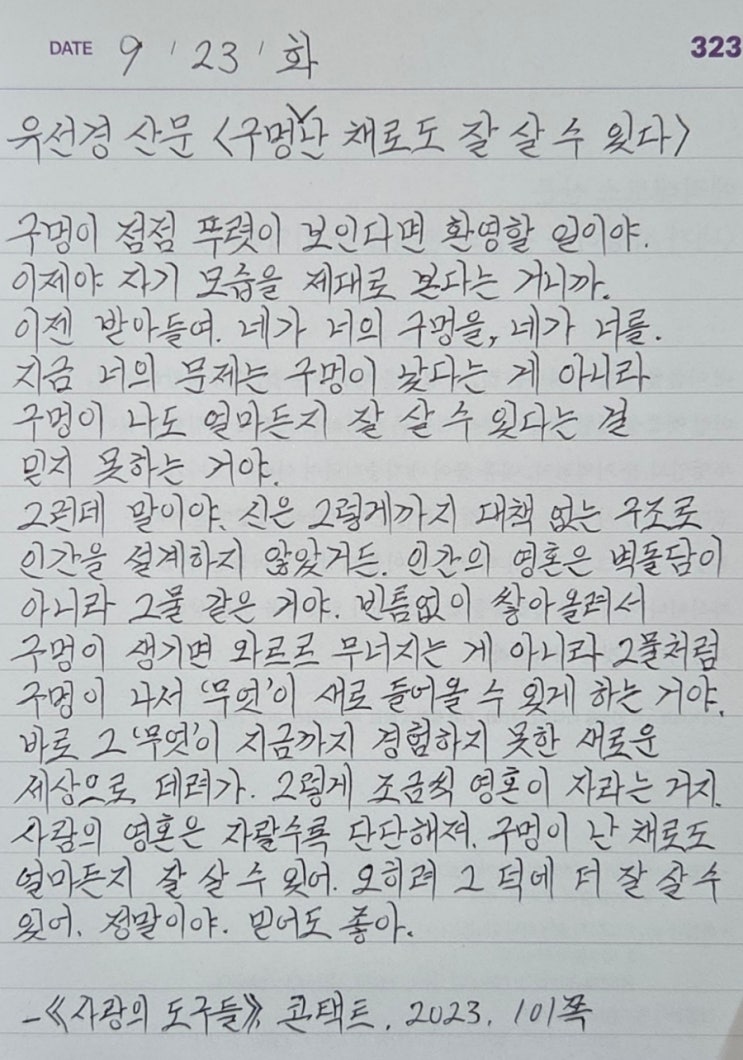 DATE 9 / 23 / 화 323
유선경 산문 <구멍∨난 채로도 잘 살 수 있다>
구멍이 점점 뚜렷이 보인다면 환영할 일이야.
이제야 자기 모습을 제대로 본다는 거니까.
이젠 받아들여. 네가 너의 구멍을, 네가 너를.
지금 너의 문제는 구멍이 났다는 게 아니라
구멍이 나도 얼마든지 잘 살 수 있다는 걸
믿지 못하는 거야.
그런데 말이야. 신은 그렇게까지 대책 없는 구조로
인간을 설계하지 않았거든. 인간의 영혼은 벽돌담이
아니라 그물 같은 거야. 빈틈없이 쌓아올려서
구멍이 생기면 와르르 무너지는 게 아니라 그물처럼
구멍이 나서 '무엇'이 새로 들어올 수 있게 하는 거야.
바로 그 '무엇'이 지금까지 경험하지 못한 새로운
세상으로 데려가. 그렇게 조금씩 영혼이 자라는 거지.
사람의 영혼은 자랄수록 단단해져. 구멍이 난 채로도
얼마든지 잘 살 수 있어. 오히려 그 덕에 더 잘 살 수
있어. 정말이야. 믿어도 좋아.
-《사랑의 도구들》, 콘택트, 2023, 101쪽